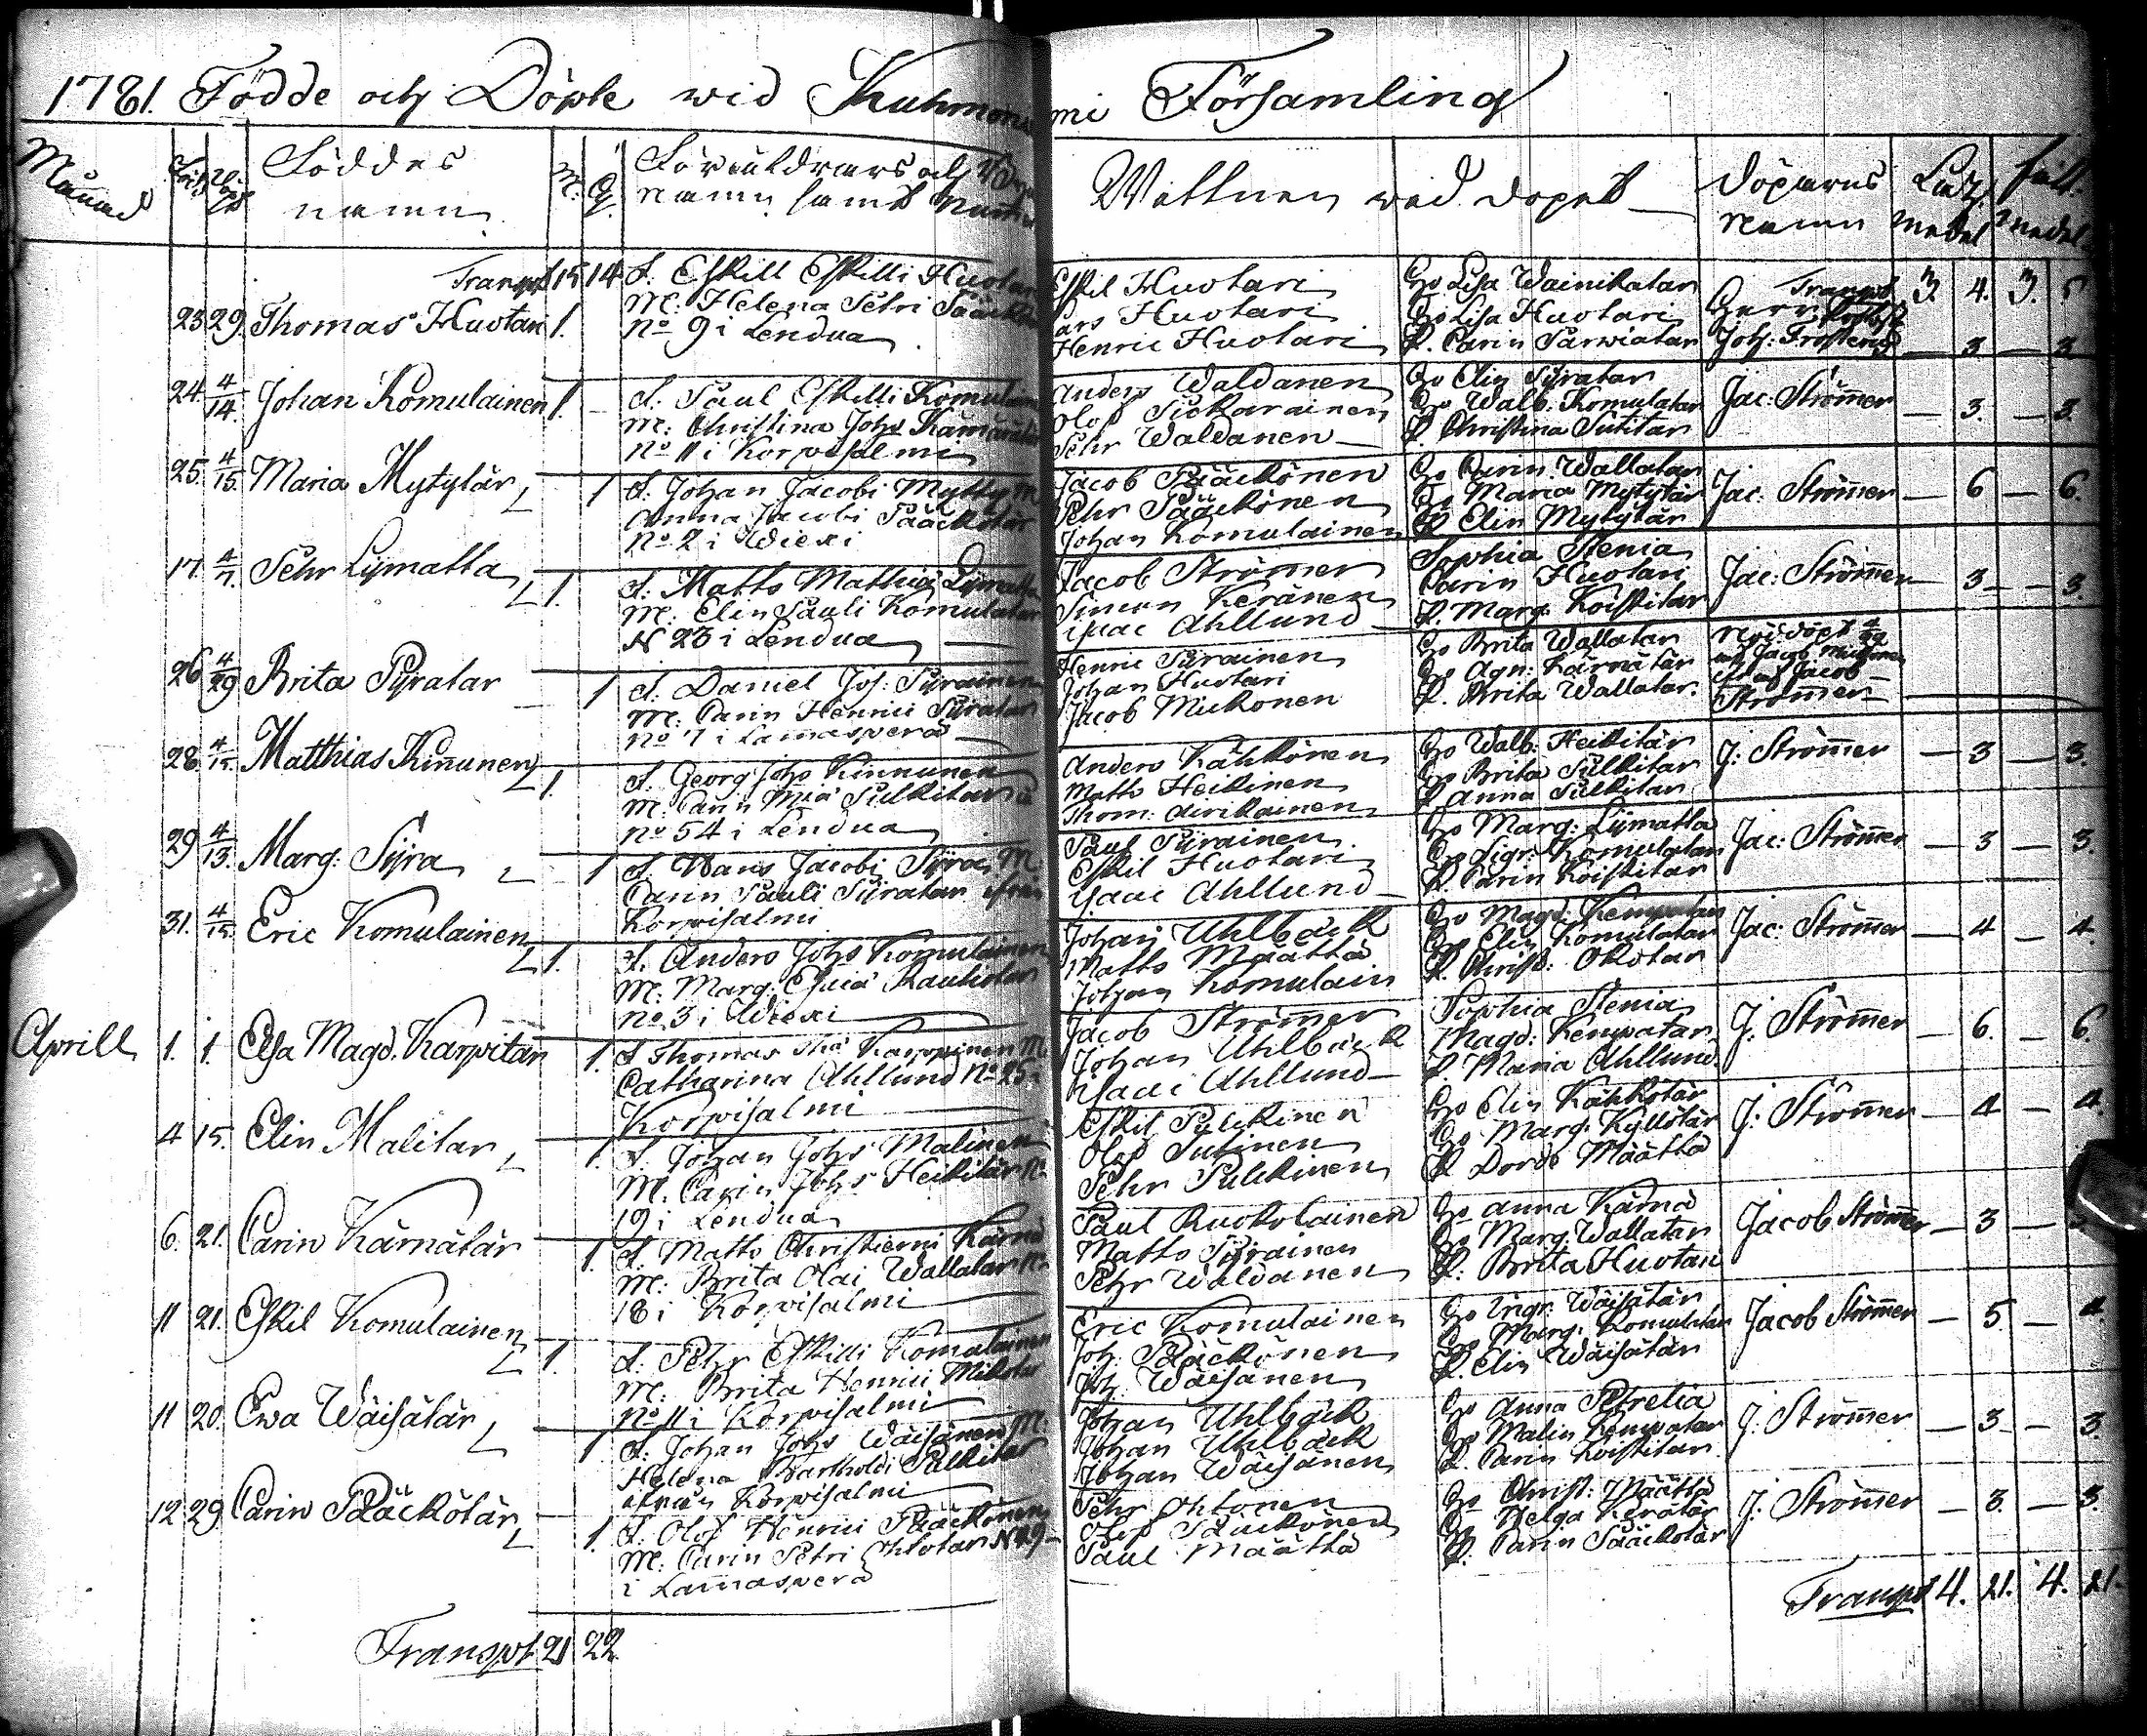 1781. Födde och Döpte wid Kuhmoniemi Församling
Månad Föddes namn M. Q. Föräldrars och namn samt Wittnen wid dopet Döparens namn medel medel
Transpt 15 14 3. 4. 3. 5
23 29. Thomas Huotari 1.
F. Eskill Eskilli Huotari
M: Helena Petri
No 9 i Lendua
Eskil Huotari
Lars Huotari
Henric Huotari
Go Lisa Wainikatar
Go Lisa Huotari
P. Carin Parwiatar
Transpt
Herr
Joh: Frosterus — 3 — 3
24. 4/14. Johan Komulainen 1.
F. Paul Eskilli Komulainen
M: Christina Johs
No 11 i Korpisalmi
Anders Waldanen
Olof Pickarainen
Pehr Waldanen
Go Elin Pyratar
Go Walb: Komulatar
P. Christina Sutitar
Jac: Strömer — 3. — 3.
25. 4/15. Maria Mytytär 1
F. Johan Jacobi Mytty M.
Anna Jacobi Pääckötär
No 2 i Wiexi
Jacob Pääckönen
Pehr Pääckönen
Johan Komulainen
Go Carin Wallatar
Go Maria Mytytär
P. Elin Mytytär
Jac: Strömer — 6 — 6.
17. 4/7. Pehr Lymatta 1.
F. Matts Mathiæ Lymatta
M: Elin Pauli Komulatar
N 23 i Lendua
Jacob Strömer
Simon Keränen
Isaac Ahllund
Sophia Stenia
Carin Huotari
P. Marg. Koistitar
Jac: Strömer — 3 — 3.
26 4/29 Brita Pyratar 1
F. Daniel Joh: Pyrainen
M: Carin Henrici Pyratar
No 7 i Lamaspera
Henric Pyrainen
Johan Huotari
Jacob Mickonen
Go Brita Wallatar
Go Agn: Kärnätär
P. Brita Wallatar
Nöddöpt 4/22
af Jacob
Strömer
28. 4/15. Matthias Kinunen 1.
F. Georg Johs Kinnunen
M. Carin Pulkitar
No 54 i Lendua
Anders Kähkönen
Matts Heikinen
Thom: Airikainen
Go Walb: Heikitär
Go Brita Pulkitar
P. Anna Pulkitar
J: Strömer — 3 — 3.
29 4/13. Marg: Pyra 1
F. Hans Jacobi Pyra, M.
Carin Pauli Pyratar ifrån
Korpisalmi
Paul Pyrainen
Eskil Huotari
Isaac Ahllund
Go Marg: Lymatta
Go Sigr: Komulatar
P. Carin Koistitar
Jac: Strömer — 3 — 3.
31. 4/15. Eric Komulainen 1.
F. Anders Johs Komulainen
M: Marg: Rautiotar
No 3 i Wiexi
Johan Uhlbäck
Matts Määttä
Johan Komulain
Go Magd: Kempatar
Go Elin Komulatar
P. Christ: Okotar
Jac: Strömer — 4 — 4.
Aprill 1. 1. Elsa Magd. Karpitar 1.
F Thomas Karppinen M.
Catharina Ahllund No 25 i
Korpisalmi
Jacob Strömer
Johan Uhlbäck
Isaac Ahllund
Sophia Stenia
Magd: Kempatar
P. Maria Ahllund
J: Strömer — 6. — 6.
4 15. Elin Malitar 1.
F. Johan Johs Malinen
M. Carin Johs Heikitär No
19 i Lendua
Eskil Pulckinen
Olof Sutinen
Pehr Pulckinen
Go Elin Kähkötär
Go Marg: Kyllötär
P. Dorde Määttä
J: Strömer — 4 — 4.
6. 21. Carin Kärnätär 1.
F. Matts Christierni Kärnä
M. Brita Olai Wallatar No
18 i Korpisalmi
Paul Ruokolainen
Matts Pyrainen
Pehr Waldanen
Go Anna Kärnä
Go Marg. Wallatar
P. Brita Huotari
Jacob Strömer — 3 —
11 21. Eskil Komulainen 1.
F. Pehr Eskilli Komulainen
M. Brita Henrici Mikotar
No 11 i Korpisalmi
Eric Komulainen
Joh: Pääckönen
Joh: Wäisänen
Go Ingr: Wäisätär
Go Marg: Komulatar
P. Elin Wäisätär
Jacob Strömer — 5 — 4.
11 20. Ewa Wäisätär 1
F. Johan Johs Wäisänen M.
Helena Bartholdi Pulkitar
ifrån Korpisalmi
Johan Uhlbäck
Johan Uhlbäck
Johan Wäisänen
Go Anna Petrelia
Go Malin Kempatar
P. Carin Koistitar
J: Strömer — 3 — 3
12 29 Carin Pääckötär 1.
F. Olof Henrici Pääckönen
M: Carin Petri Ohtotar N 29
i Lamaspera
Pehr Ohtonen
Olof Pääckönen
Paul Määttä
Go Christ: Määttä
Go Helga Kerätär
P. Carin Pääckötär
J: Strömer — 3. — 3.
Transpt 21 22.
Transpt 4. 21. 4. 21.